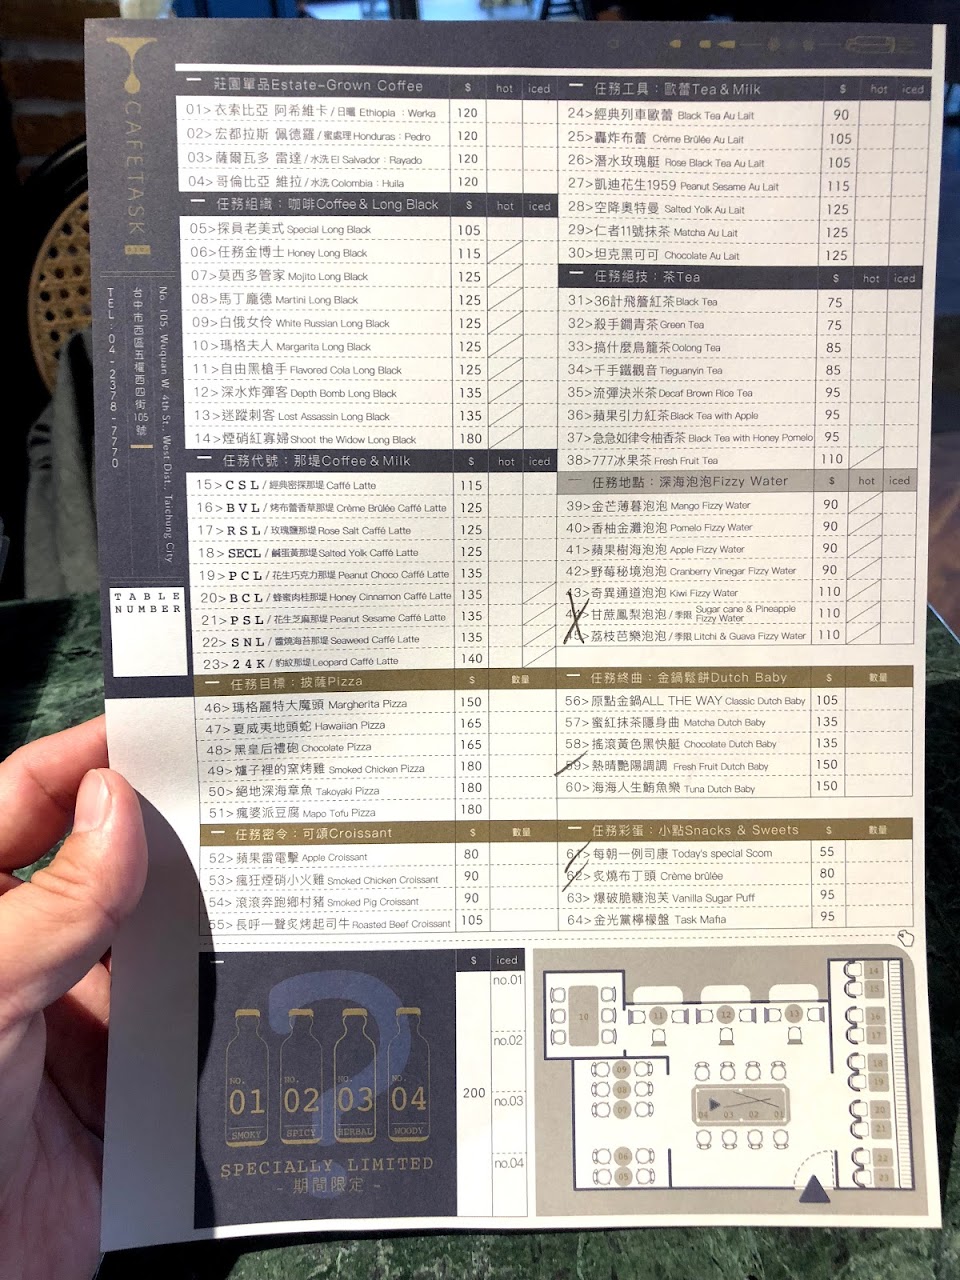 CAFETASK
No. 105, Wuquan W. 4th St., West Dist., Taichung City
台中市西區五權西四街105號
TEL:04-2378-7770
TABLE
NUMBER
莊園單品Estate-Grown Coffee $ hot iced
01>衣索比亞 阿希維卡/日曬 Ethiopia：Werka 120
02>宏都拉斯 佩德羅/蜜處理 Honduras：Pedro 120
03>薩爾瓦多 雷達/水洗 El Salvador：Rayado 120
04>哥倫比亞 維拉/水洗 Colombia：Huila 120
任務組織：咖啡Coffee & Long Black $ hot iced
05>探員老美式 Special Long Black 105
06>任務金博士 Honey Long Black 115
07>莫西多管家 Mojito Long Black 125
08>馬丁龐德 Martini Long Black 125
09>白俄女伶 White Russian Long Black 125
10>瑪格夫人 Margarita Long Black 125
11>自由黑槍手 Flavored Cola Long Black 125
12>深水炸彈客 Depth Bomb Long Black 135
13>迷蹤刺客 Lost Assassin Long Black 135
14>煙硝紅寡婦 Shoot the Widow Long Black 180
任務代號：那堤Coffee & Milk $ hot iced
15>CSL/經典密探那堤 Caffé Latte 115
16>BVL/烤布蕾香草那堤 Crème Brûlée Caffé Latte 125
17>RSL/玫瑰鹽那堤 Rose Salt Caffé Latte 125
18>SECL/鹹蛋黃那堤 Salted Yolk Caffé Latte 125
19>PCL/花生巧克力那堤 Peanut Choco Caffé Latte 135
20>BCL/蜂蜜肉桂那堤 Honey Cinnamon Caffé Latte 135
21>PSL/花生芝麻那堤 Peanut Sesame Caffé Latte 135
22>SNL/醬燒海苔那堤 Seaweed Caffé Latte 135
23>24K/豹紋那堤 Leopard Caffé Latte 140
任務目標：披薩Pizza $ 數量
46>瑪格麗特大魔頭 Margherita Pizza 150
47>夏威夷地頭蛇 Hawaiian Pizza 165
48>黑皇后禮砲 Chocolate Pizza 165
49>爐子裡的窯烤雞 Smoked Chicken Pizza 180
50>絕地深海章魚 Takoyaki Pizza 180
51>瘋婆派豆腐 Mapo Tofu Pizza 180
任務密令：可頌Croissant $ 數量
52>蘋果雷電擊 Apple Croissant 80
53>瘋狂煙硝小火雞 Smoked Chicken Croissant 90
54>滾滾奔跑鄉村豬 Smoked Pig Croissant 90
55>長呼一聲炙烤起司牛 Roasted Beef Croissant 105
任務工具：歐蕾Tea & Milk $ hot iced
24>經典列車歐蕾 Black Tea Au Lait 90
25>轟炸布蕾 Créme Brûlée Au Lait 105
26>潛水玫瑰艇 Rose Black Tea Au Lait 105
27>凱迪花生1959 Peanut Sesame Au Lait 115
28>空降奧特曼 Salted Yolk Au Lait 125
29>仁者11號抹茶 Matcha Au Lait 125
30>坦克黑可可 Chocolate Au Lait 125
任務絕技：茶Tea $ hot iced
31>36計飛簷紅茶 Black Tea 75
32>殺手鐧青茶 Green Tea 75
33>搞什麼烏龍茶 Oolong Tea 85
34>千手鐵觀音 Tieguanyin Tea 85
35>流彈決米茶 Decaf Brown Rice Tea 95
36>蘋果引力紅茶 Black Tea with Apple 95
37>急急如律令柚香茶 Black Tea with Honey Pomelo 95
38>777冰果茶 Fresh Fruit Tea 110
任務地點：深海泡泡Fizzy Water $ hot iced
39>金芒薄暮泡泡 Mango Fizzy Water 90
40>香柚金灘泡泡 Pomelo Fizzy Water 90
41>蘋果樹海泡泡 Apple Fizzy Water 90
42>野莓秘境泡泡 Cranberry Vinegar Fizzy Water 90
43>奇異通道泡泡 Kiwi Fizzy Water 110
44>甘蔗鳳梨泡泡/季限 Sugar cane & Pineapple Fizzy Water 110
45>荔枝芭樂泡泡/季限 Litchi & Guava Fizzy Water 110
任務終曲：金鍋鬆餅Dutch Baby $ 數量
56>原點金鍋ALL THE WAY Classic Dutch Baby 105
57>蜜紅抹茶隱身曲 Matcha Dutch Baby 135
58>搖滾黃色黑快艇 Chocolate Dutch Baby 135
59>熱晴艷陽調調 Fresh Fruit Dutch Baby 150
60>海海人生鮪魚樂 Tuna Dutch Baby 150
任務彩蛋：小點Snacks & Sweets $ 數量
61>每朝一例司康 Today's special Scorn 55
62>炙燒布丁頭 Crème brûlée 80
63>爆破脆糖泡芙 Vanilla Sugar Puff 95
64>金光黨檸檬盤 Task Mafia 95
$ iced
NO. 01 SMOKY
NO. 02 SPICY
NO. 03 HERBAL
NO. 04 WOODY
SPECIALLY LIMITED
- 期間限定 -
200
no.01
no.02
no.03
no.04
10 11 12 13
14
15
16
17
18
19
20
21
22
23
09
08
07
06
05
04 03 02 01